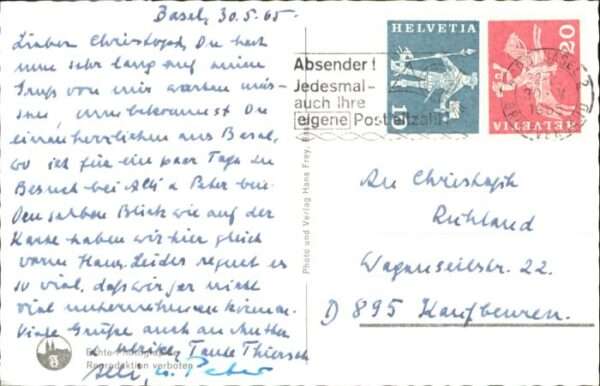 Basel, 30.5.65.
Lieber Christoph, Du hast
nun sehr lang auf einen
Gruss von mir warten müs-
sen, nun bekommst Du
einen herzlichen aus Basel,
wo ich für ein paar Tage zu
Besuch bei Alli u Peter bin.
Den selben Blick wie auf der
Karte haben wir hier gleich
vorm Haus. Leider regnet es
so viel, dass wir gar nicht
viel unternehmen können.
Viele Grüße auch an Mutter
u. Ulrike, Tante Thiersch
Alli u. Peter
Echte Photographie
Reproduktion verboten
Photo und Verlag Hans Frey,
HELVETIA
10
HELVETIA
20
Absender!
Jedesmal-
auch Ihre
eigene Postleitzahl
An Christoph
Ruhland
Wagenseilstr. 22.
D) 895 Kaufbeuren.